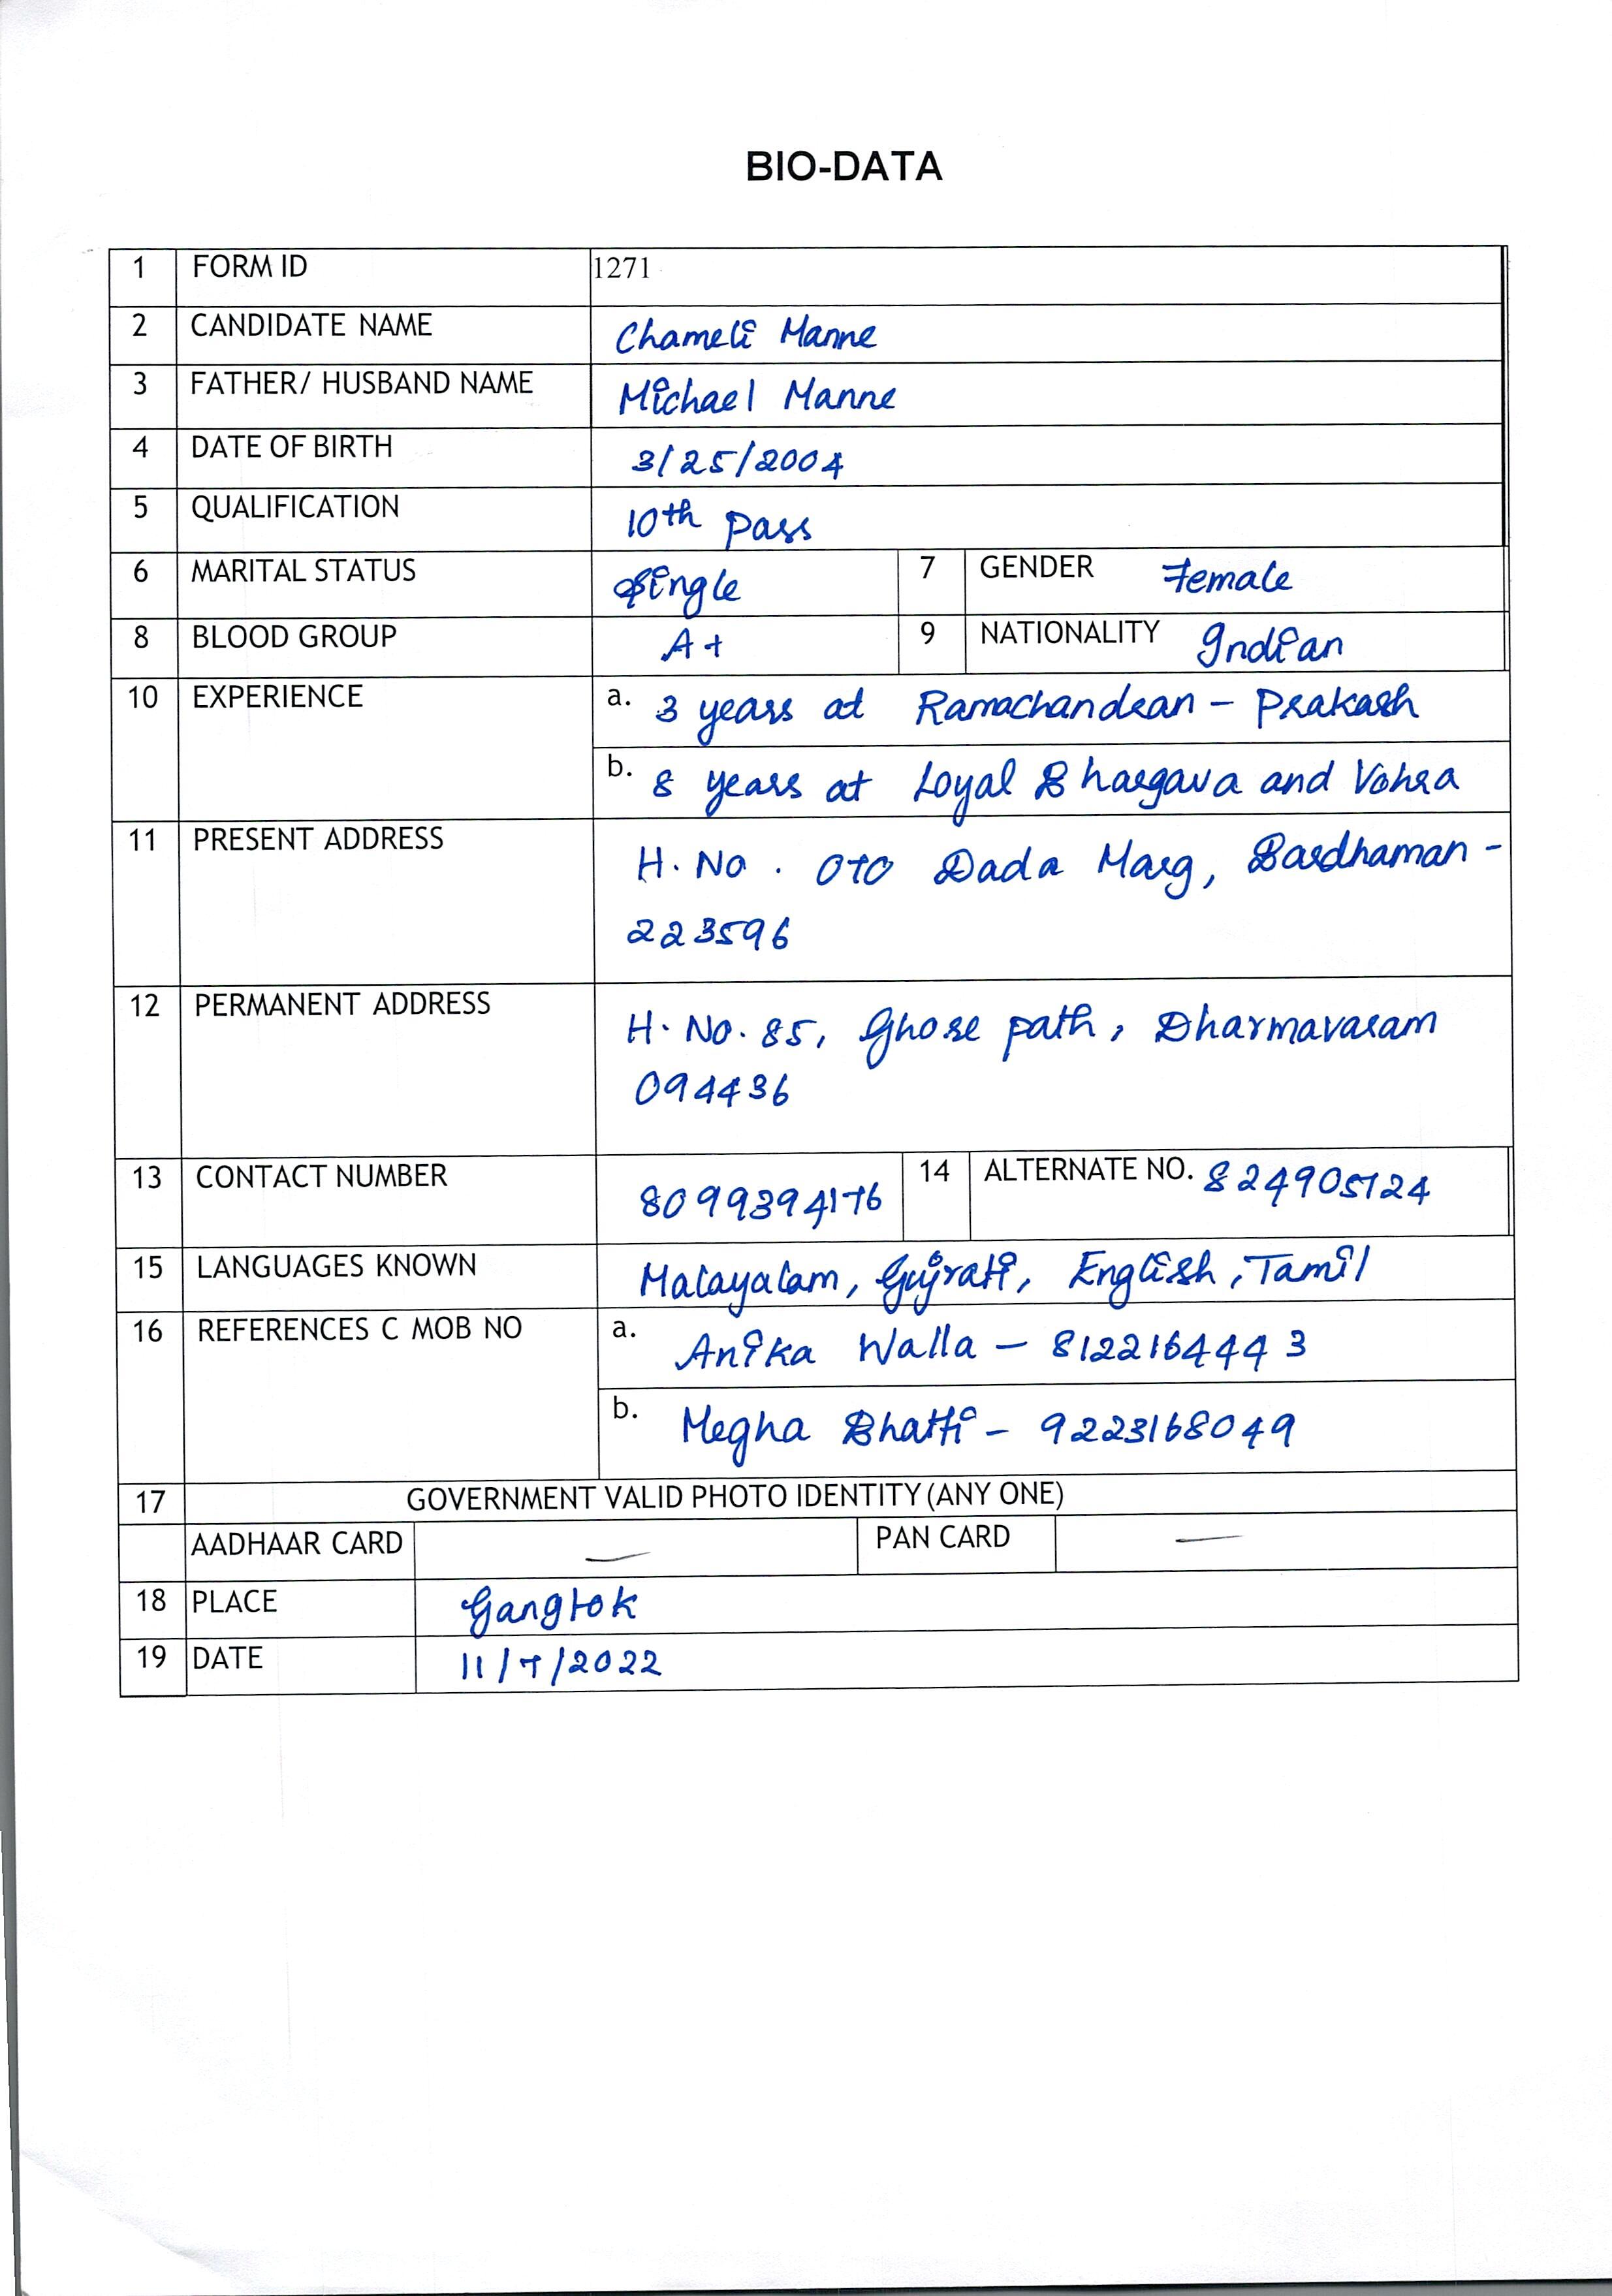 BIO-DATA
1 FORM ID 1271
2 CANDIDATE NAME Chameli Manne
3 FATHER/ HUSBAND NAME Michael Manne
4 DATE OF BIRTH 3/25/2004
5 QUALIFICATION 10th pass
6 MARITAL STATUS Single 7 GENDER Female
8 BLOOD GROUP A+ 9 NATIONALITY Indian
10 EXPERIENCE a. 3 years at Ramachandran - Prakash
b. 8 years at Loyal Bhargava and Vohra
11 PRESENT ADDRESS H. No. 070 Dada Marg, Bardhaman -
223596
12 PERMANENT ADDRESS H. No. 85, Ghose path, Dharmavaram
094436
13 CONTACT NUMBER 8099394176 14 ALTERNATE NO. 824905724
15 LANGUAGES KNOWN Malayalam, Gujrati, English, Tamil
16 REFERENCES C MOB NO a. Anika Walla - 8122164443
b. Megha Bhatti - 9223168049
17 GOVERNMENT VALID PHOTO IDENTITY (ANY ONE)
AADHAAR CARD — PAN CARD —
18 PLACE Gangtok
19 DATE 11/7/2022